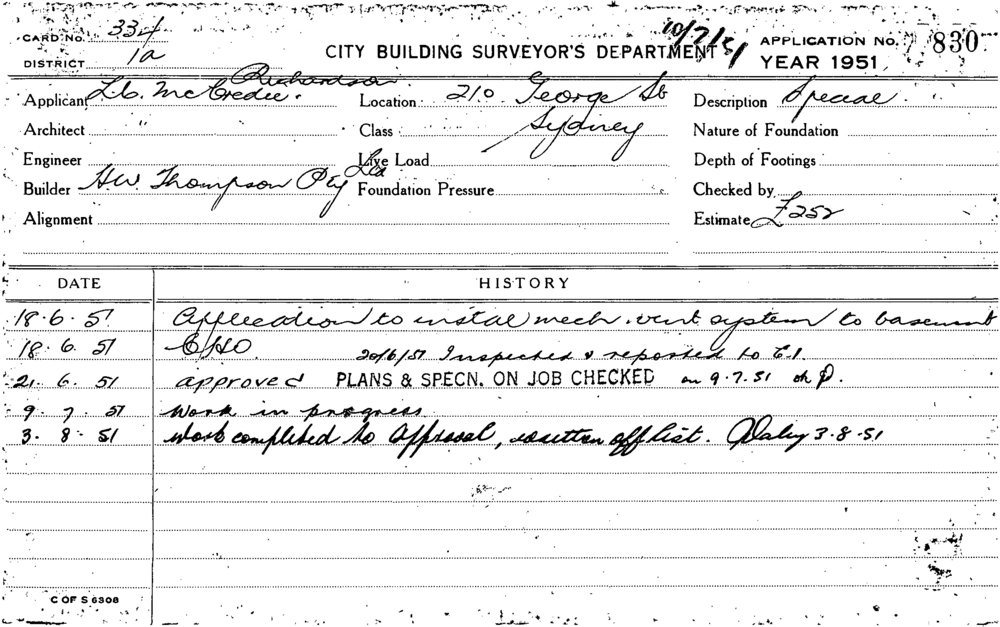 CARD No. 334
DISTRICT 1a
CITY BUILDING SURVEYOR'S DEPARTMENT
10/7/51
APPLICATION No. 830
YEAR 1951
Richardson
Applicant L.C. McCredie. Location 210 George St Description Special
Architect " Class Sydney Nature of Foundation
Engineer Live Load Depth of Footings
Builder H.W. Thompson Pty Ltd Foundation Pressure Checked by
Alignment Estimate £252
DATE HISTORY
18.6.51 Application to instal mech. vent system to basement
18.6.51 CHO. 20/6/51 Inspected & reported to C.I.
21.6.51 approved PLANS & SPECN. ON JOB CHECKED on 9.7.51
9.7.51 Work in progress
3.8.51 Work completed to approval, written off list. Daley 3.8.51
C OF S 6308